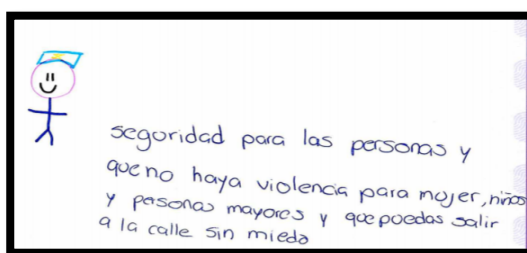 seguridad para las personas y
que no haya violencia para mujer, niños
y personas mayores y que puedas salir
a la calle sin miedo